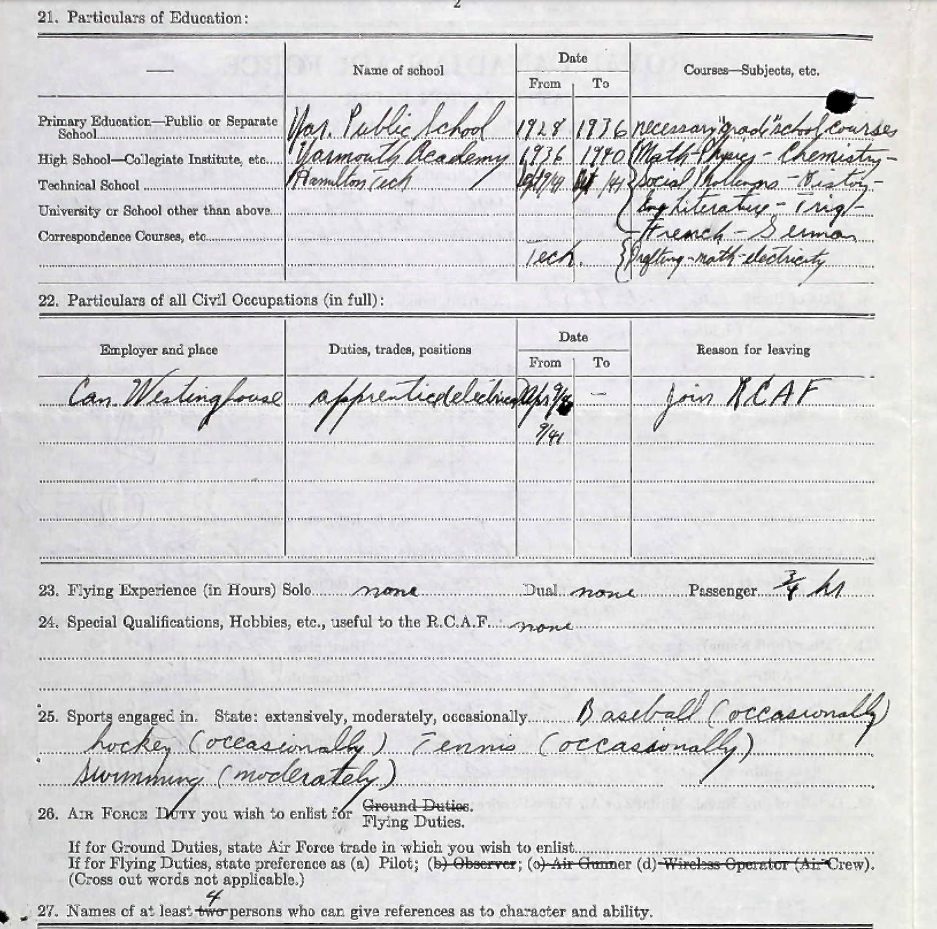 2
21. Particulars of Education:
— Name of school Date Courses—Subjects, etc.
From To
Primary Education—Public or Separate School Yar. Public School 1928 1936 necessary "grade" school courses
High School—Collegiate Institute, etc. Yarmouth Academy 1936 1940 Math-Physics - Chemistry-
Technical School Hamilton Tech /41 /41 Social Problems - History-
University or School other than above Eng Literature - Trig-
Correspondence Courses, etc. -French - German
Tech. Drafting-math-electricity
22. Particulars of all Civil Occupations (in full):
Employer and place Duties, trades, positions Date Reason for leaving
From To
Can. Westinghouse apprentice Apr — join RCAF
9/41
23. Flying Experience (in Hours) Solo none Dual none Passenger 3/4 hr
24. Special Qualifications, Hobbies, etc., useful to the R.C.A.F. none
25. Sports engaged in. State: extensively, moderately, occasionally Baseball (occasionally)
hockey (occasionally) Tennis (occasionally)
swimming (moderately)
26. AIR FORCE DUTY you wish to enlist for Ground Duties.
Flying Duties.
If for Ground Duties, state Air Force trade in which you wish to enlist
If for Flying Duties, state preference as (a) Pilot; (b) Observer; (c) Air Gunner (d) Wireless Operator (Air Crew).
(Cross out words not applicable.)
4
27. Names of at least two persons who can give references as to character and ability.